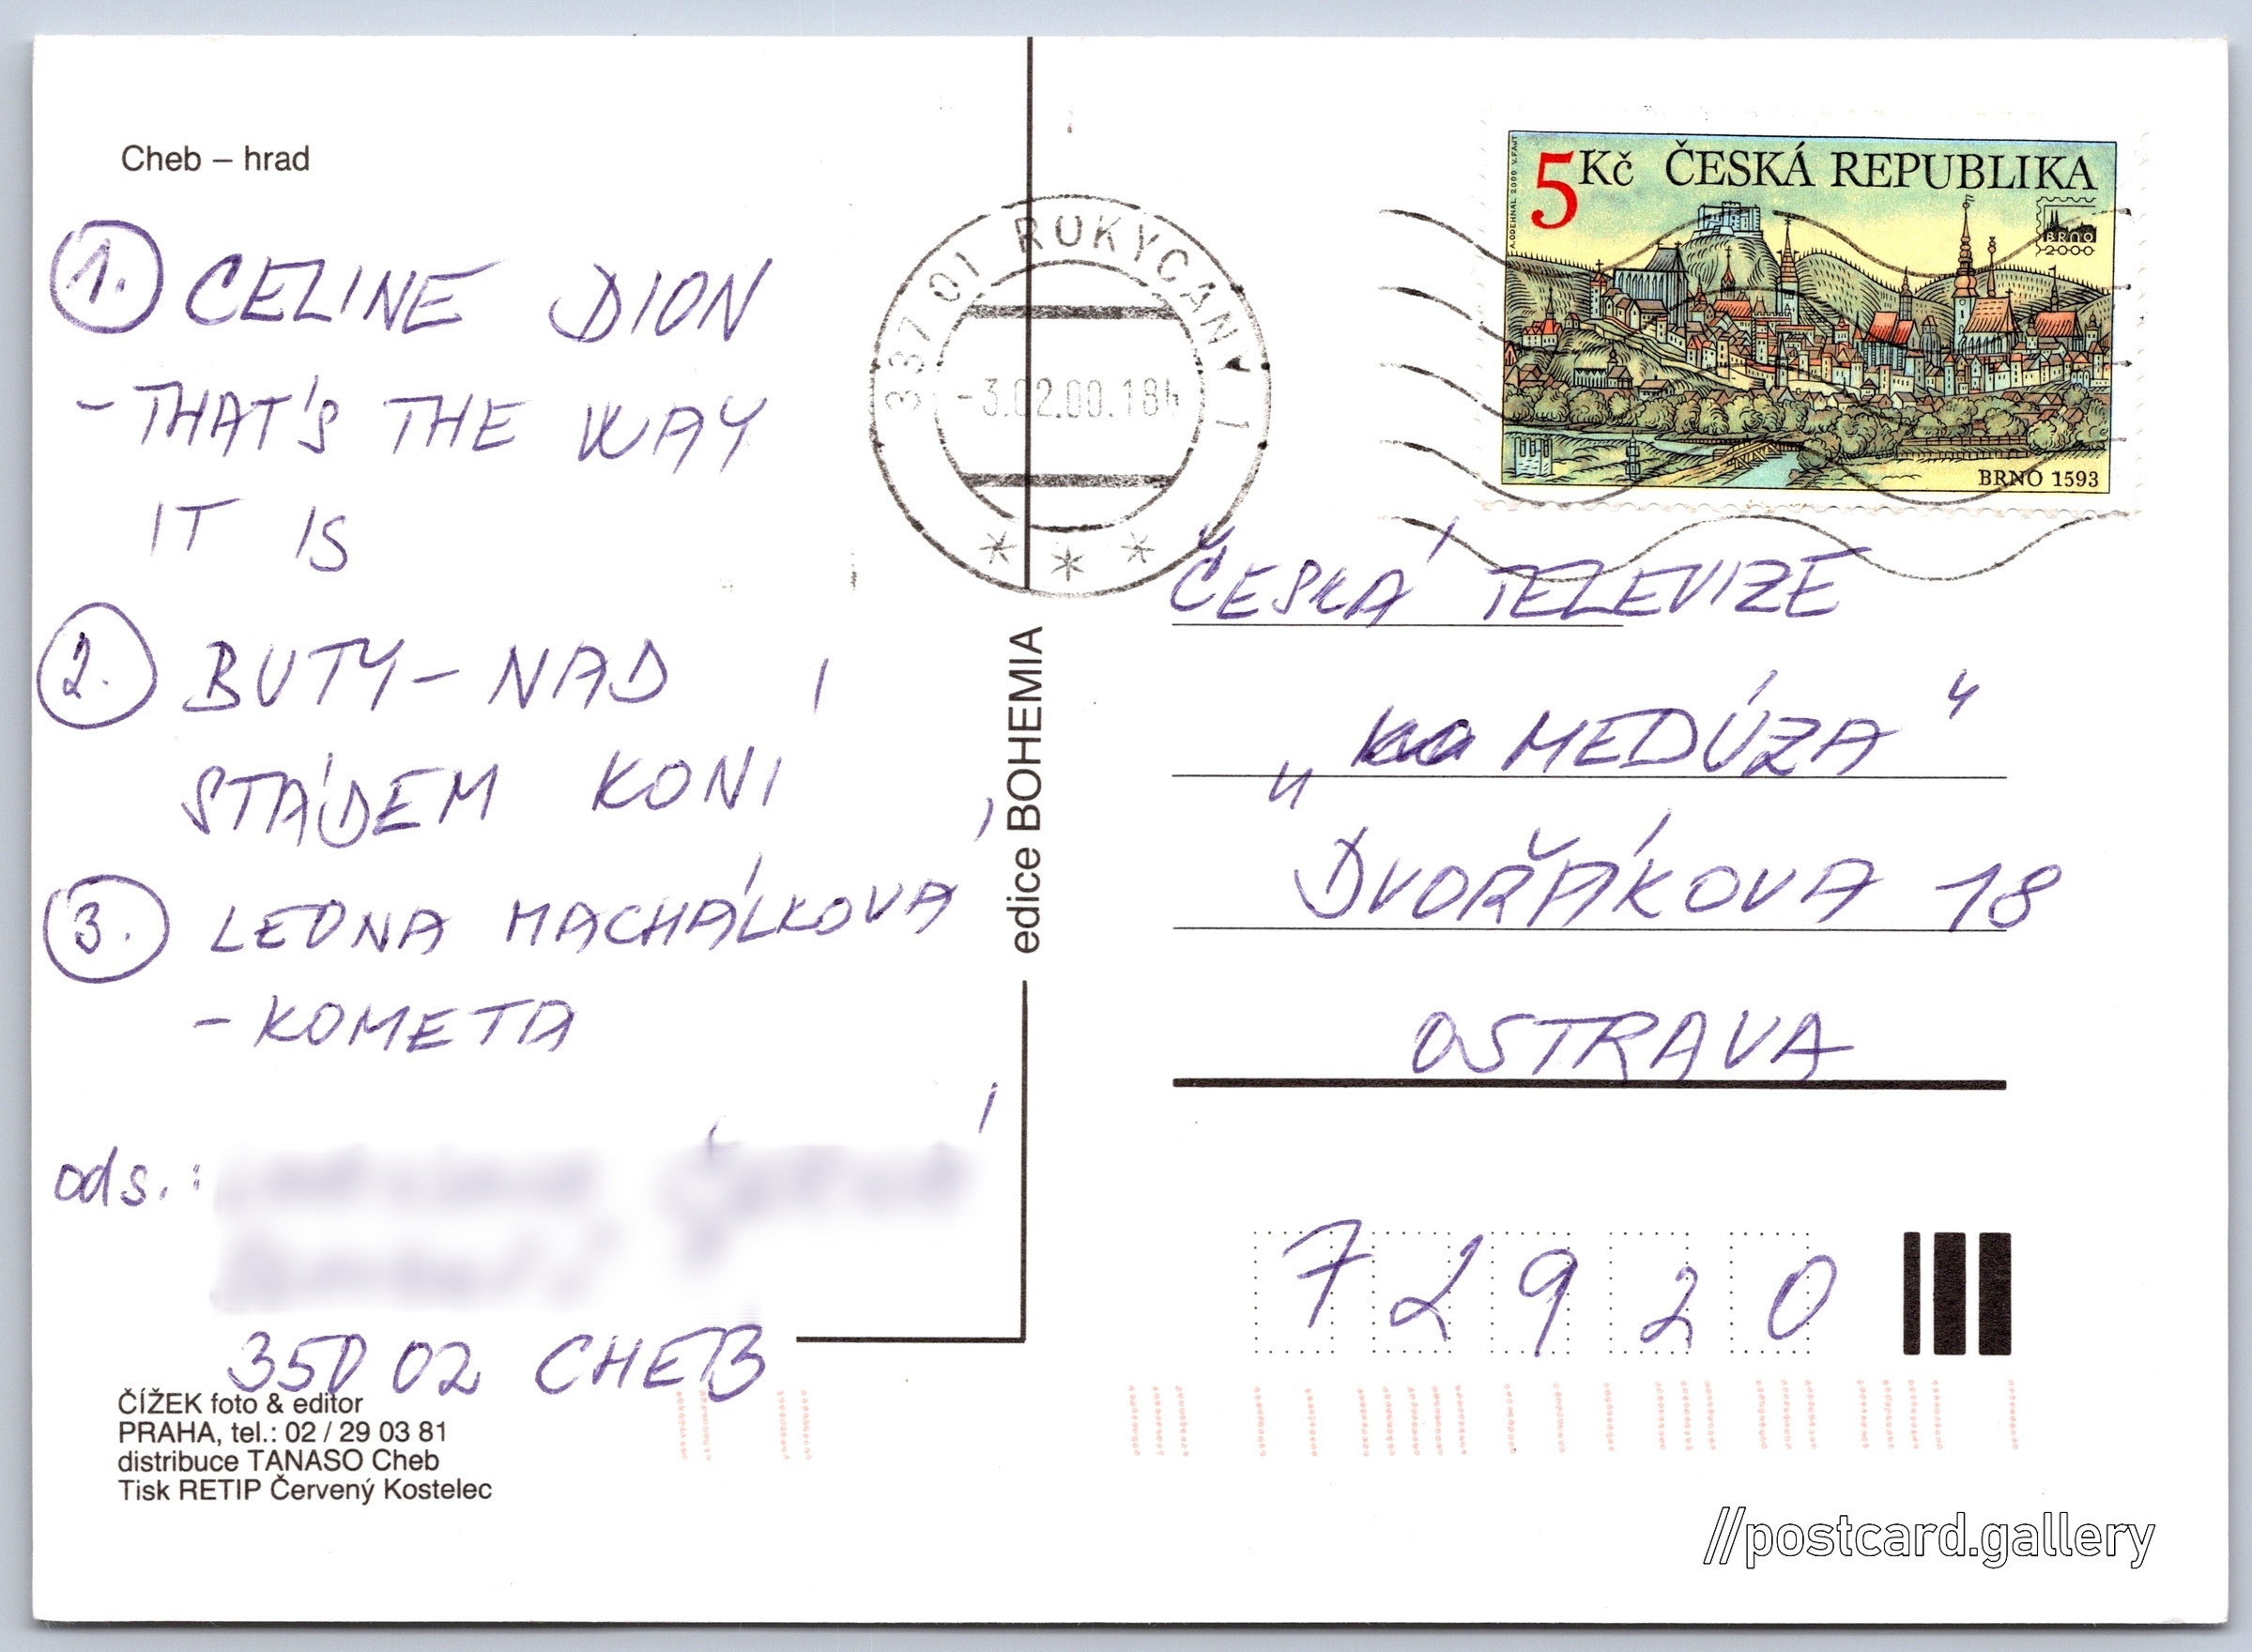 Cheb – hrad
1. CELINE DION
- THAT'S THE WAY
IT IS
2. BUTY - NAD
STÁDEM KONÍ
3. LEONA MACHÁLKOVÁ
- KOMETA
ods.:
350 02 CHEB
ČÍŽEK foto & editor
PRAHA, tel.: 02 / 29 03 81
distribuce TANASO Cheb
Tisk RETIP Červený Kostelec
edice BOHEMIA
337 01 ROKYCANY 1
-3.02.00.18h
5 Kč ČESKÁ REPUBLIKA
BRNO
2000
BRNO 1593
ČESKÁ TELEVIZE
„ MEDÚZA "
DVOŘÁKOVA 18
OSTRAVA
72920
//postcard.gallery